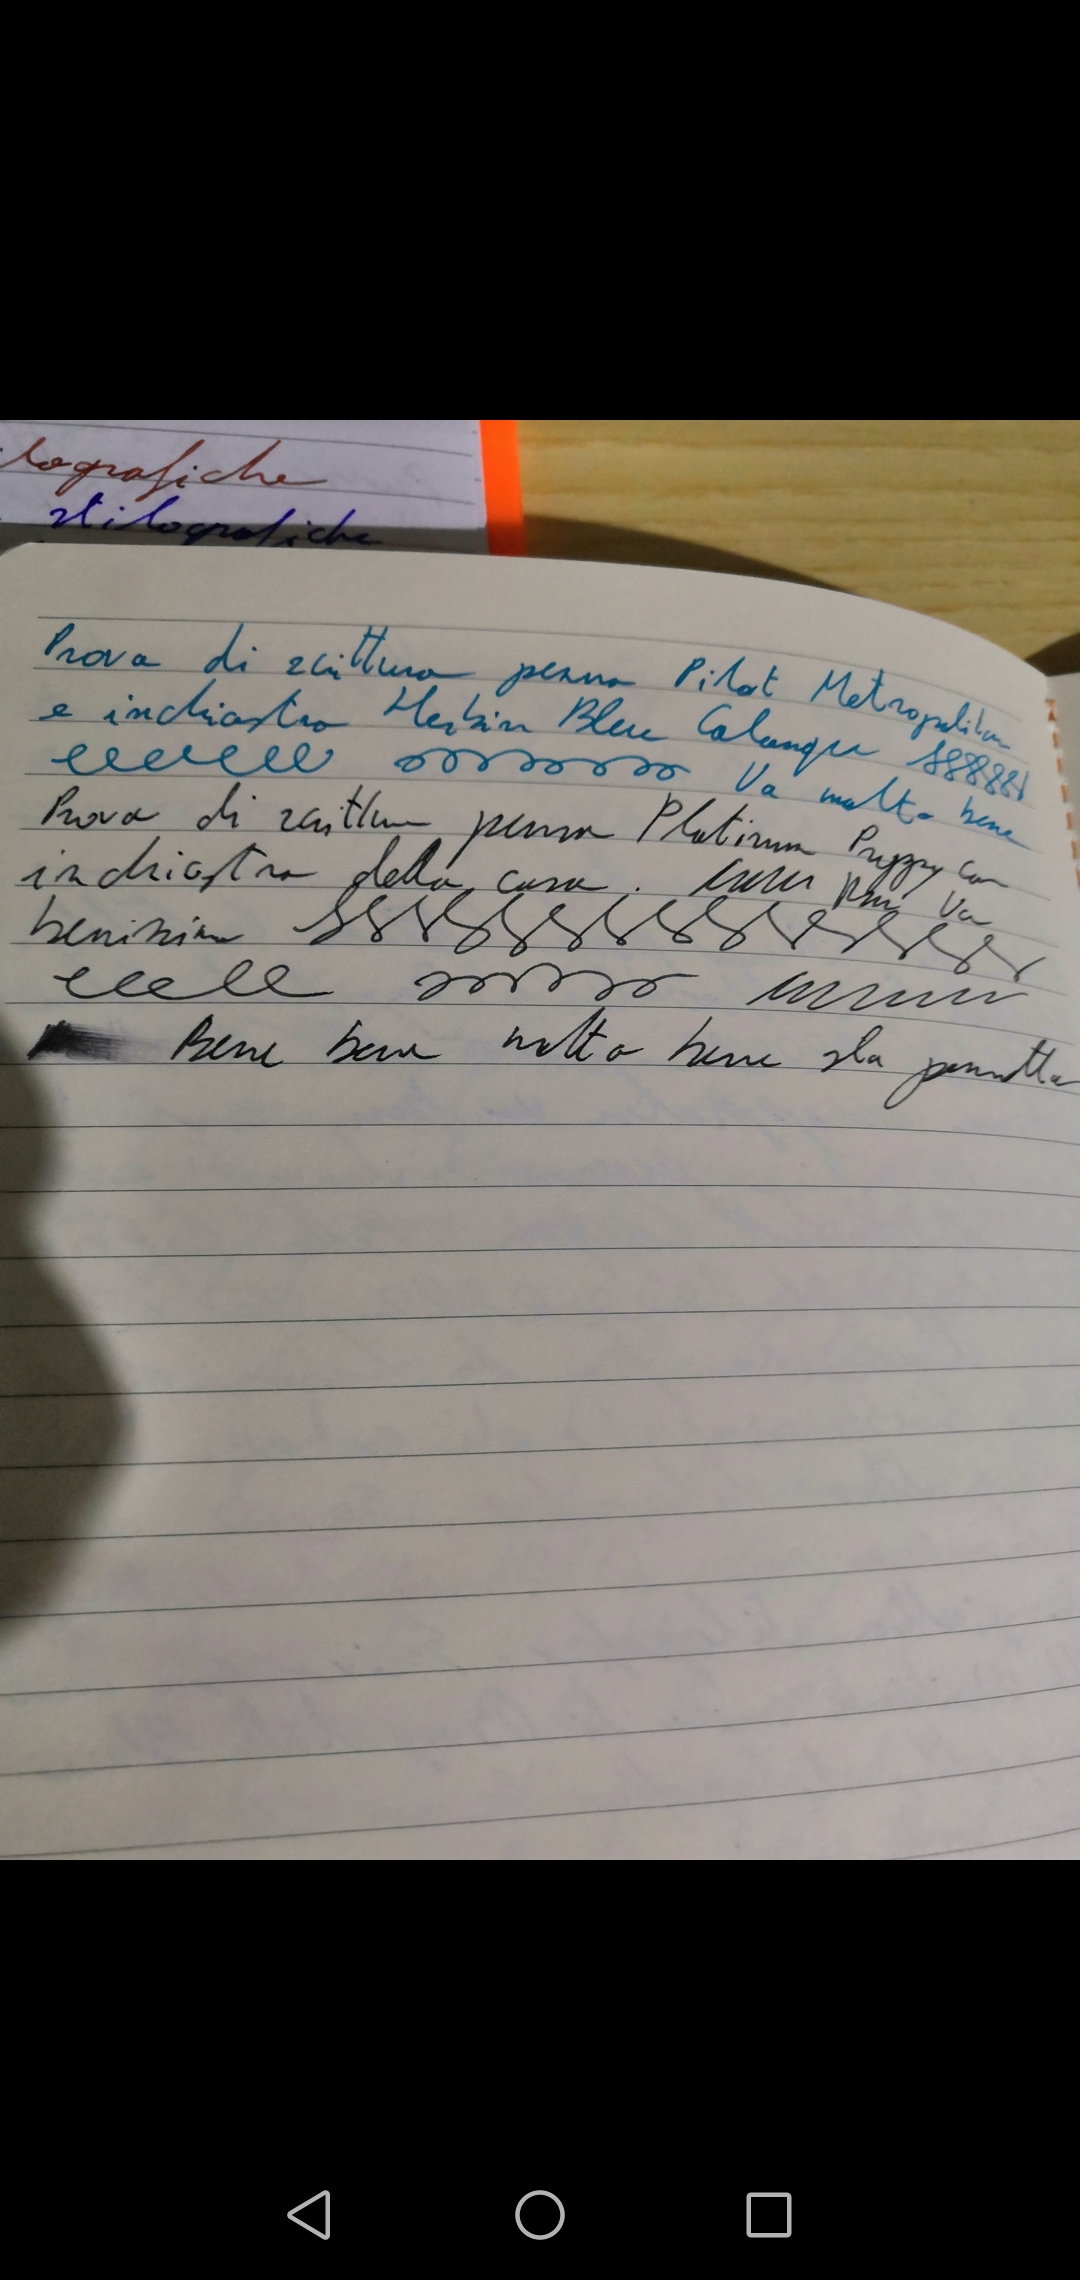 lografiche
stilografiche
Prova di scrittura penna Pilot Metropolitan
e inchiostro Herbin Bleu Calanque 8888888
eeeeeee Va molto bene
Prova di scrittura penna Platinum Preppy con
inchiostro della casa. Va
benissimo
eeeee
Bene bene molto bene sta pennetta